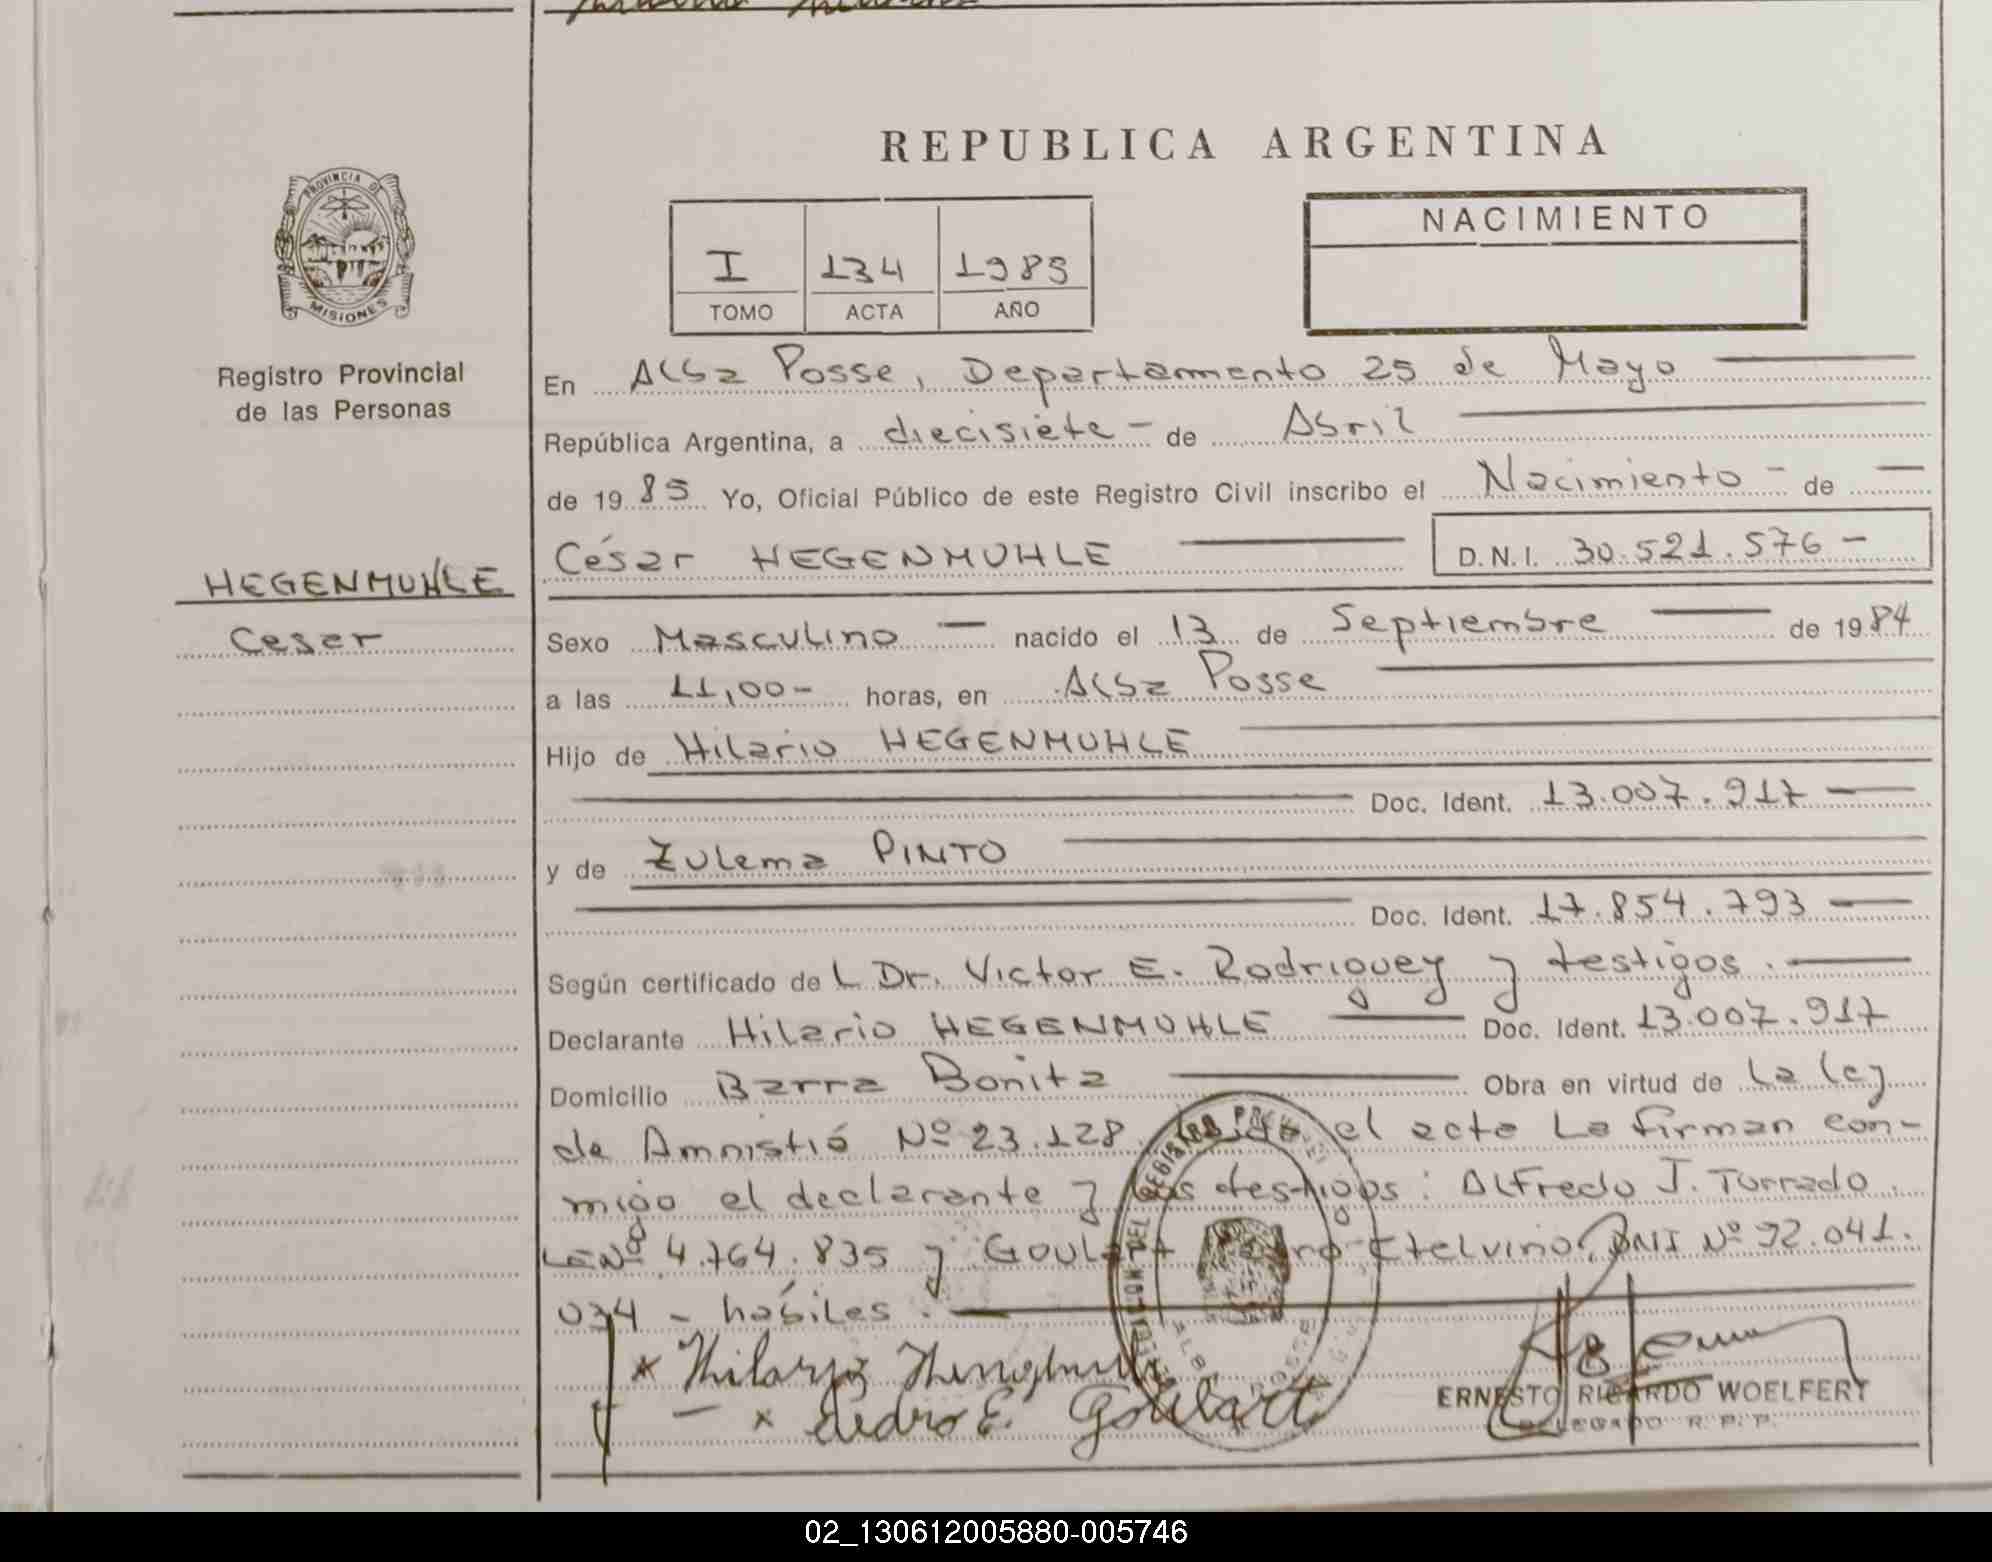 REPUBLICA ARGENTINA
PROVINCIA DE
MISIONES
Registro Provincial
de las Personas
I 134 1985
TOMO ACTA AÑO
NACIMIENTO
En Alba Posse, Departamento 25 de Mayo
República Argentina, a diecisiete - de Abril
de 1985 Yo, Oficial Público de este Registro Civil inscribo el Nacimiento - de
César HEGENMUHLE D.N.I. 30.521.576 -
HEGENMUHLE
Cesar
Sexo Masculino nacido el 13 de Septiembre de 1984
a las 11,00- horas, en Alba Posse
Hijo de Hilario HEGENMUHLE
Doc. Ident. 13.007.917
y de Zulema PINTO
Doc. Ident. 17.854.793
Según certificado de L Dr. Victor E. Rodriguez y testigos.
Declarante Hilario HEGENMUHLE Doc. Ident. 13.007.917
Domicilio Barra Bonita Obra en virtud de la ley
de Amnistió Nº 23.128. el acto lo firman con-
migo el declarante y los testigos: Alfredo J. Torrado
LE Nº 4.764.835 y Goulart Etelvino, DNI Nº 92.041.
034 - hábiles.
x Hilario
- x Pedro E. Goulart
ERNESTO RICARDO WOELFERT
DELEGADO R. P. P.
02_130612005880-005746